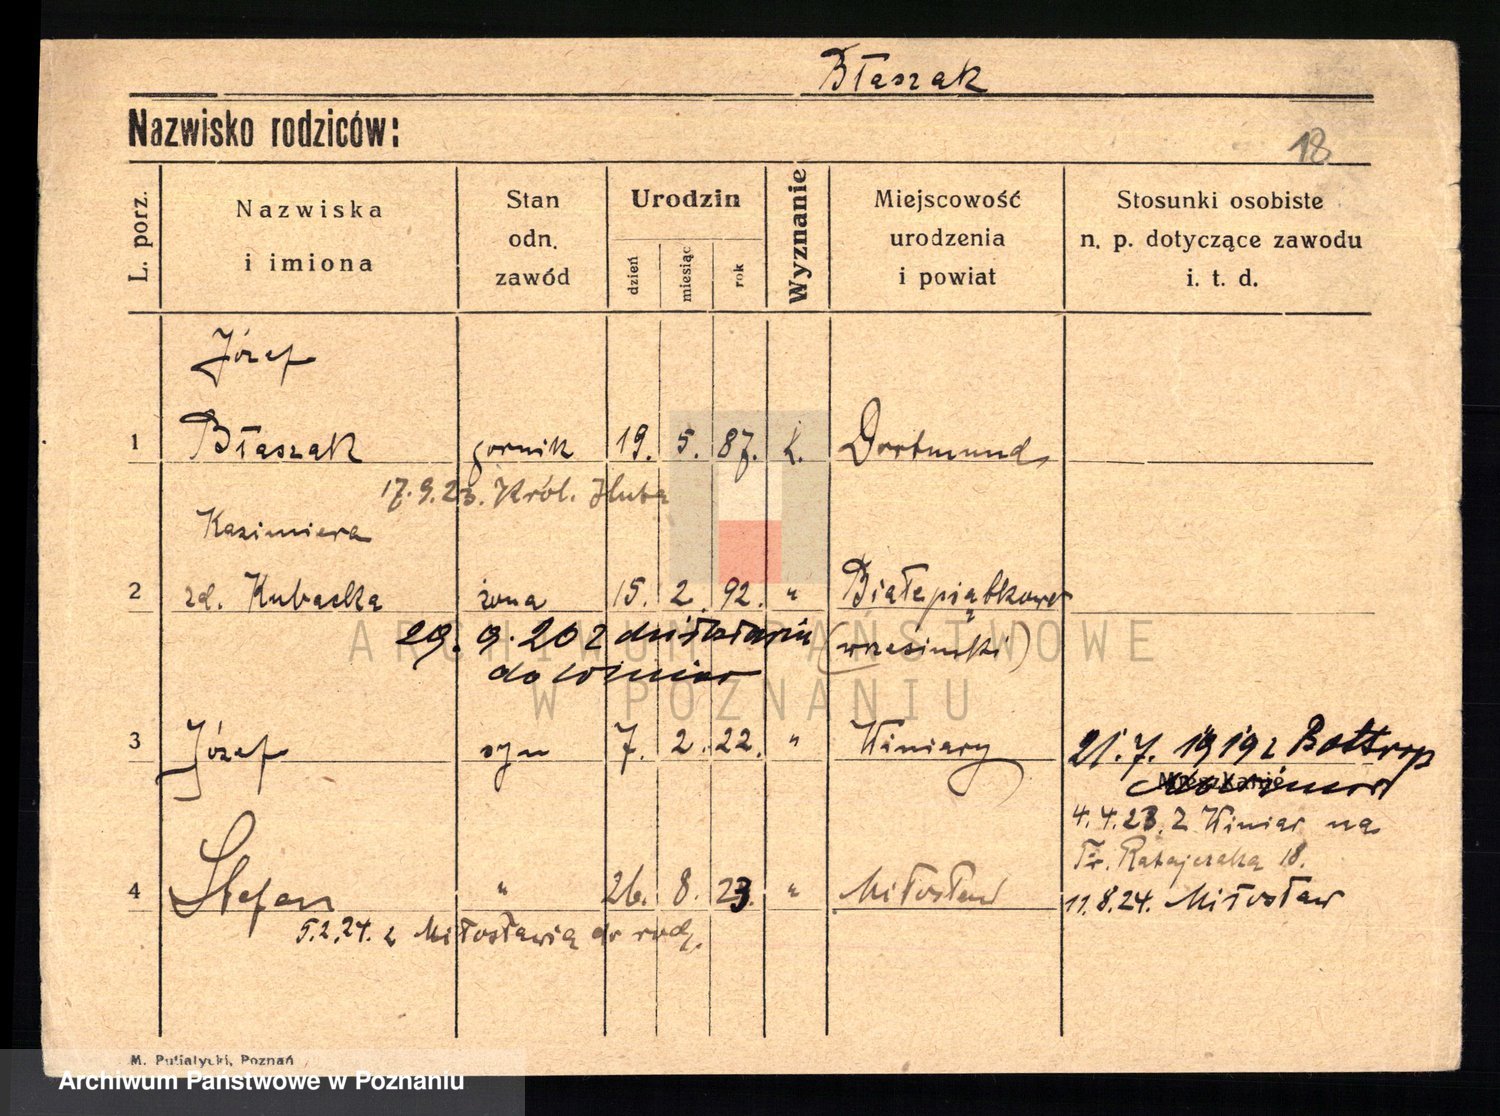 Błaszak
Nazwisko rodziców:
18
L. porz.
Nazwiska
i imiona
Stan
odn.
zawód
Urodzin
dzień
miesiąc
rok
Wyznanie
Miejscowość
urodzenia
i powiat
Stosunki osobiste
n. p. dotyczące zawodu
i. t. d.
Józef
1 Błaszak gornik 19. 5. 87. k. Dortmund
17.9.23. Król. Huta
Kazimiera
2 zd. Kubacka żona 15. 2. 92. " Białepiątkowo
29. 9. 20 z (wrzesiński)
do Winiar
3 Józef syn 7. 2. 22. " Winiary
21. 7. 1919 z Bottrop
4.4.23. z Winiar na
Fr. Ratajczaka 18.
4 Stefan " 26. 8. 23. " Miłosław
11.8.24. Miłosław
5.2.24. z Miłosławia do rodz.
ARCHIWUM PAŃSTWOWE
W POZNANIU
M. Putiatycki, Poznań
Archiwum Państwowe w Poznaniu